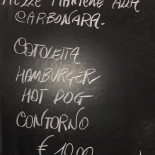 MEZZE MANICHE ALLA
CARBONARA.
COTOLETTA
HAMBURGER
HOT DOG
CONTORNO
€ 10,00